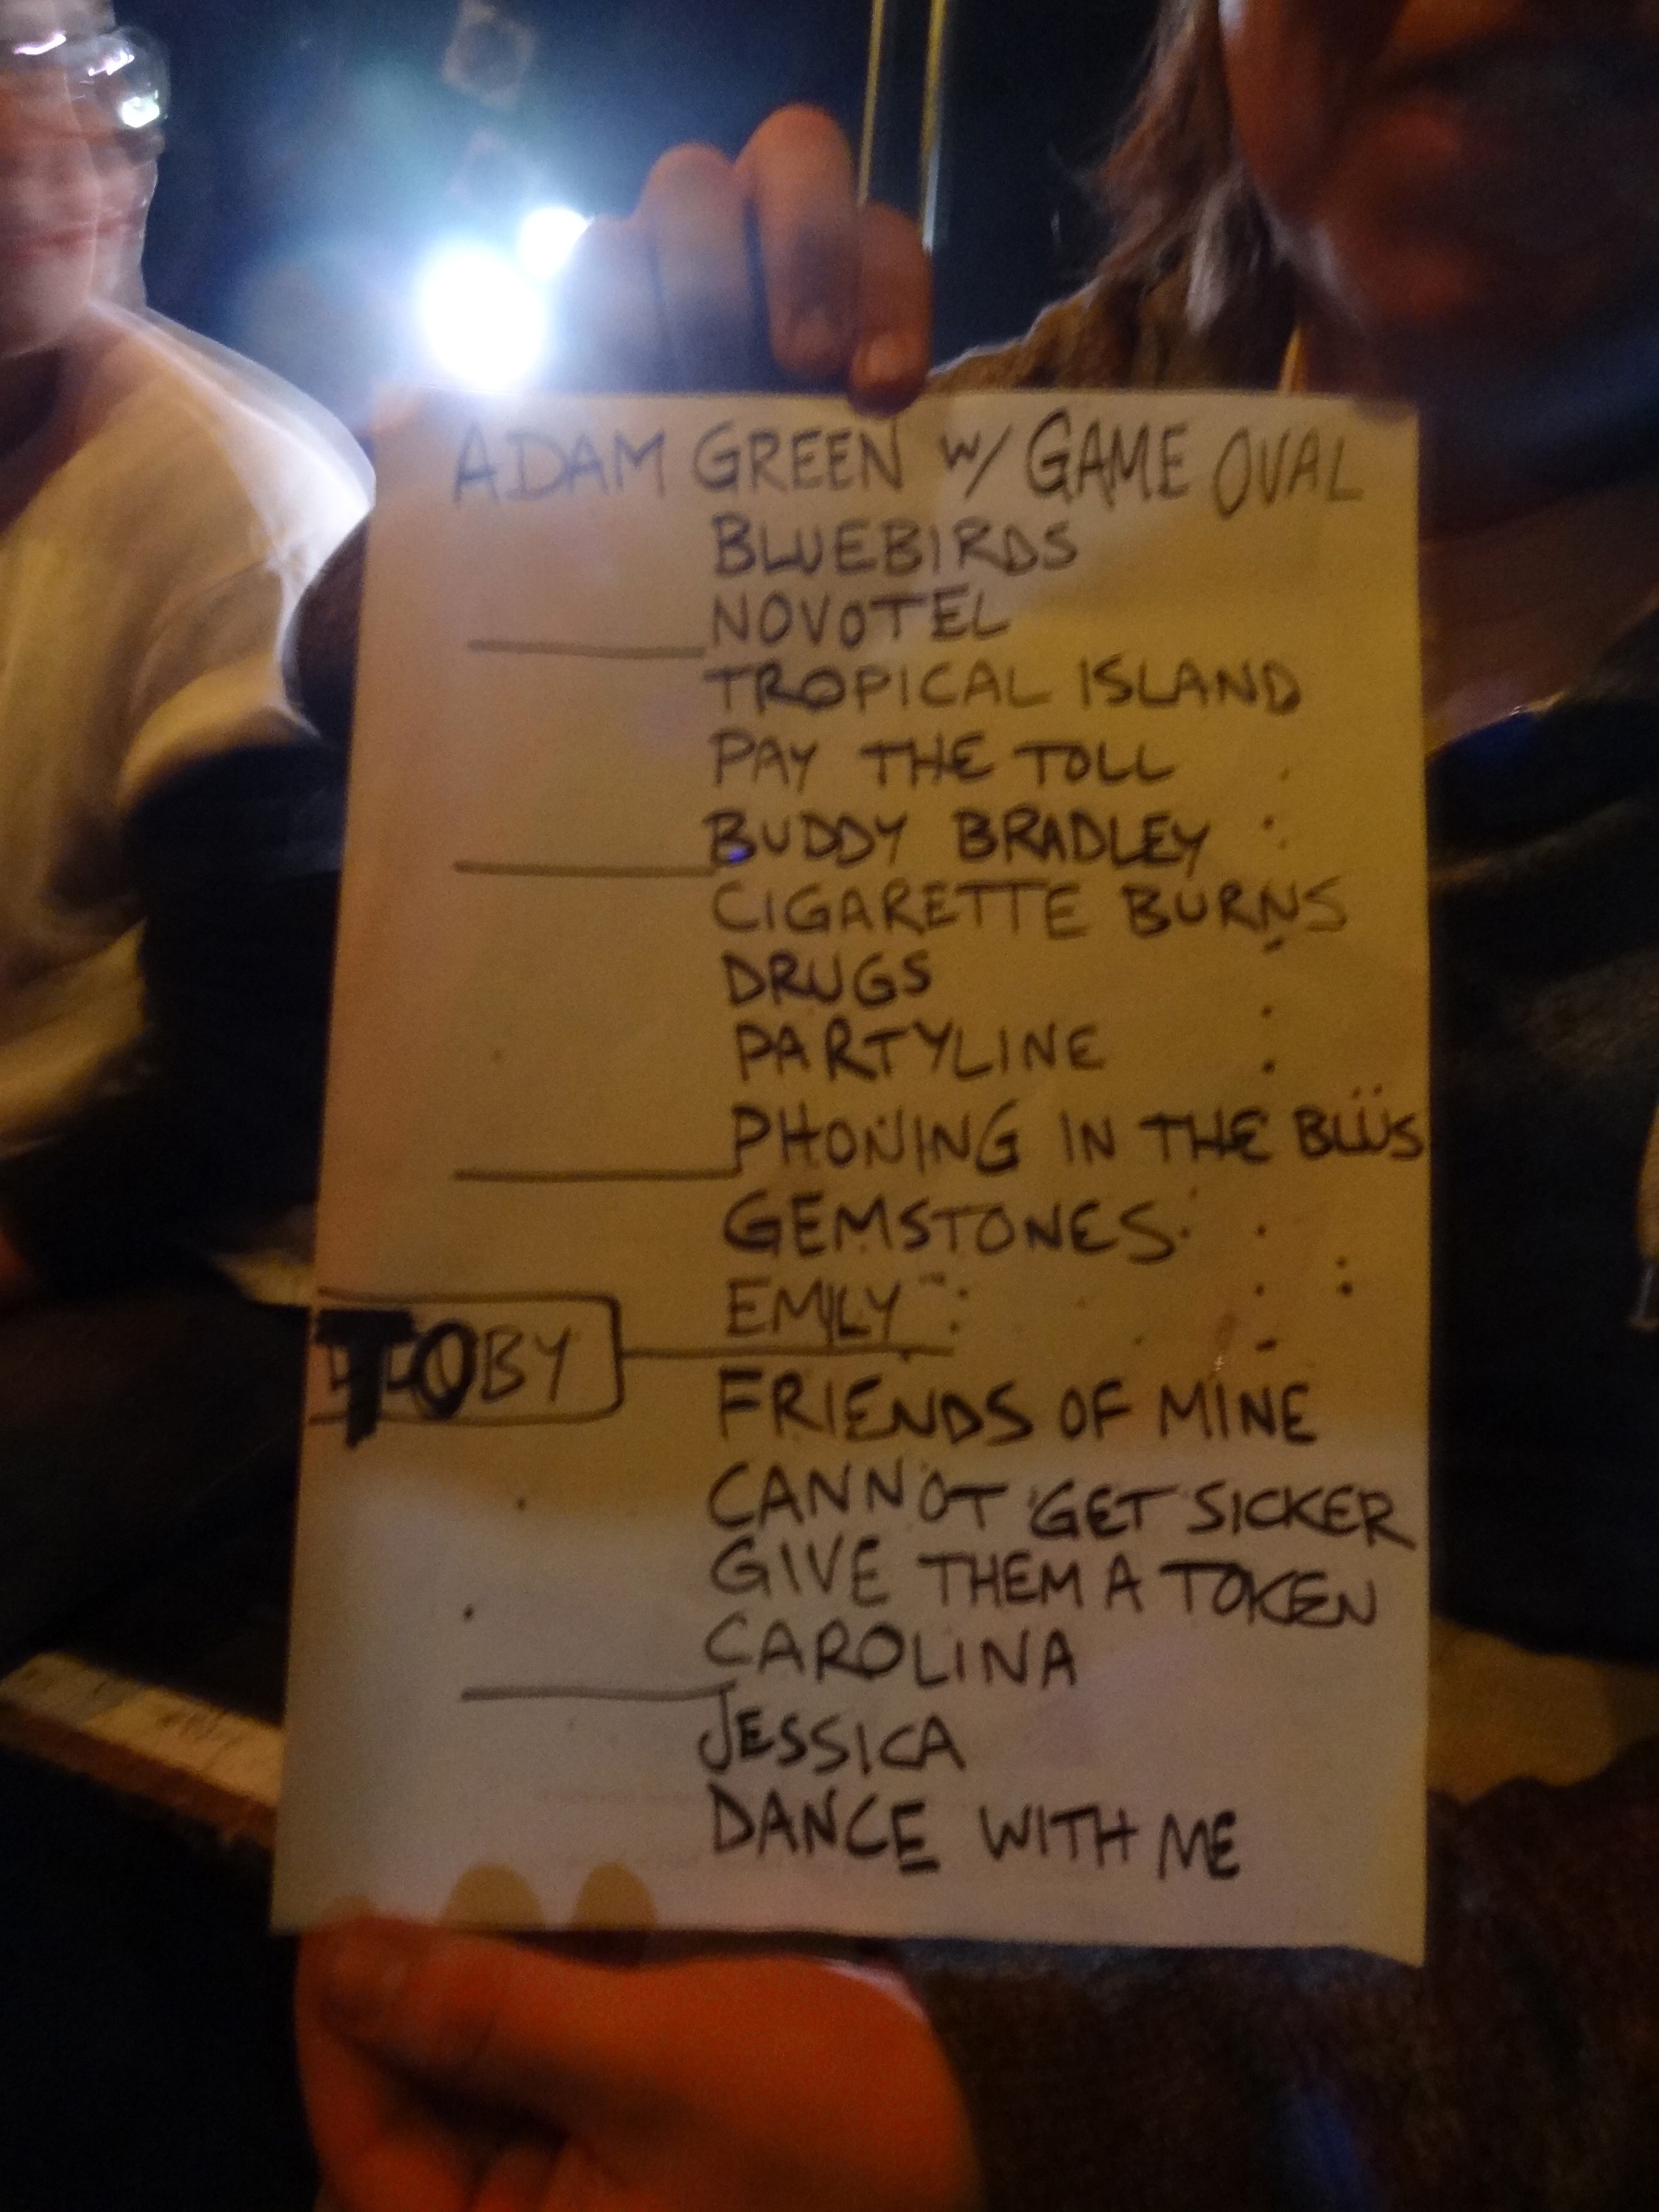 ADAM GREEN W/ GAME OVAL
BLUEBIRDS
NOVOTEL
TROPICAL ISLAND
PAY THE TOLL
BUDDY BRADLEY
CIGARETTE BURNS
DRUGS
PARTYLINE
PHONING IN THE BLÜS
GEMSTONES
EMILY
TOBY
FRIENDS OF MINE
CANNOT GET SICKER
GIVE THEM A TOKEN
CAROLINA
JESSICA
DANCE WITH ME